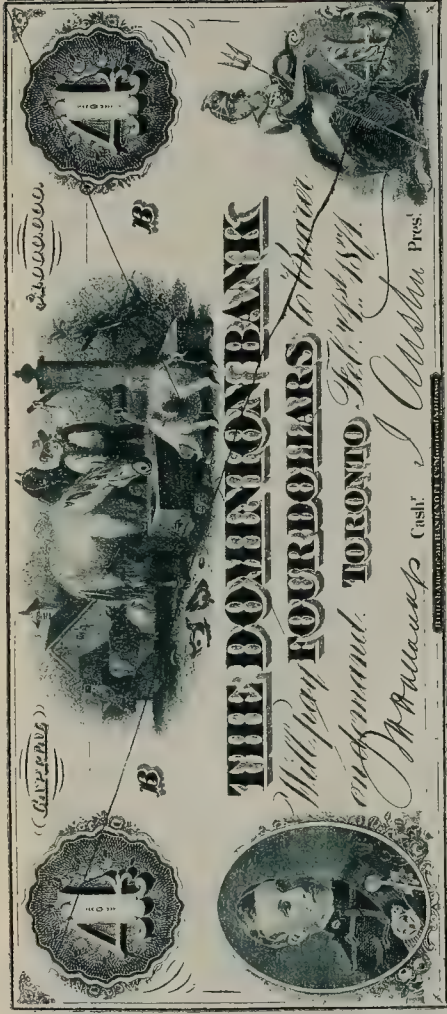 4 4
B B
THE DOMINION BANK
Will pay FOUR DOLLARS to bearer
on demand. TORONTO, Feb. 1871.
Cash.r J Austin Pres.t
British American BANK NOTE Co Montreal & Ottawa
4